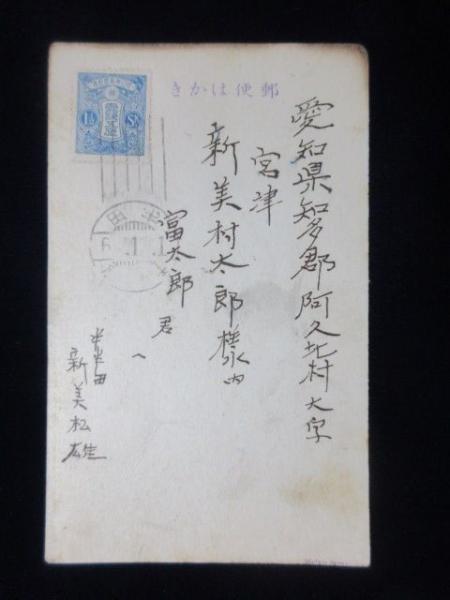 郵便はかき
愛知県知多郡阿久比村大字
宮津
新美村太郎様内
富太郎君
へ
半田
新美松雄
1½ Sn
半田
6.1.1